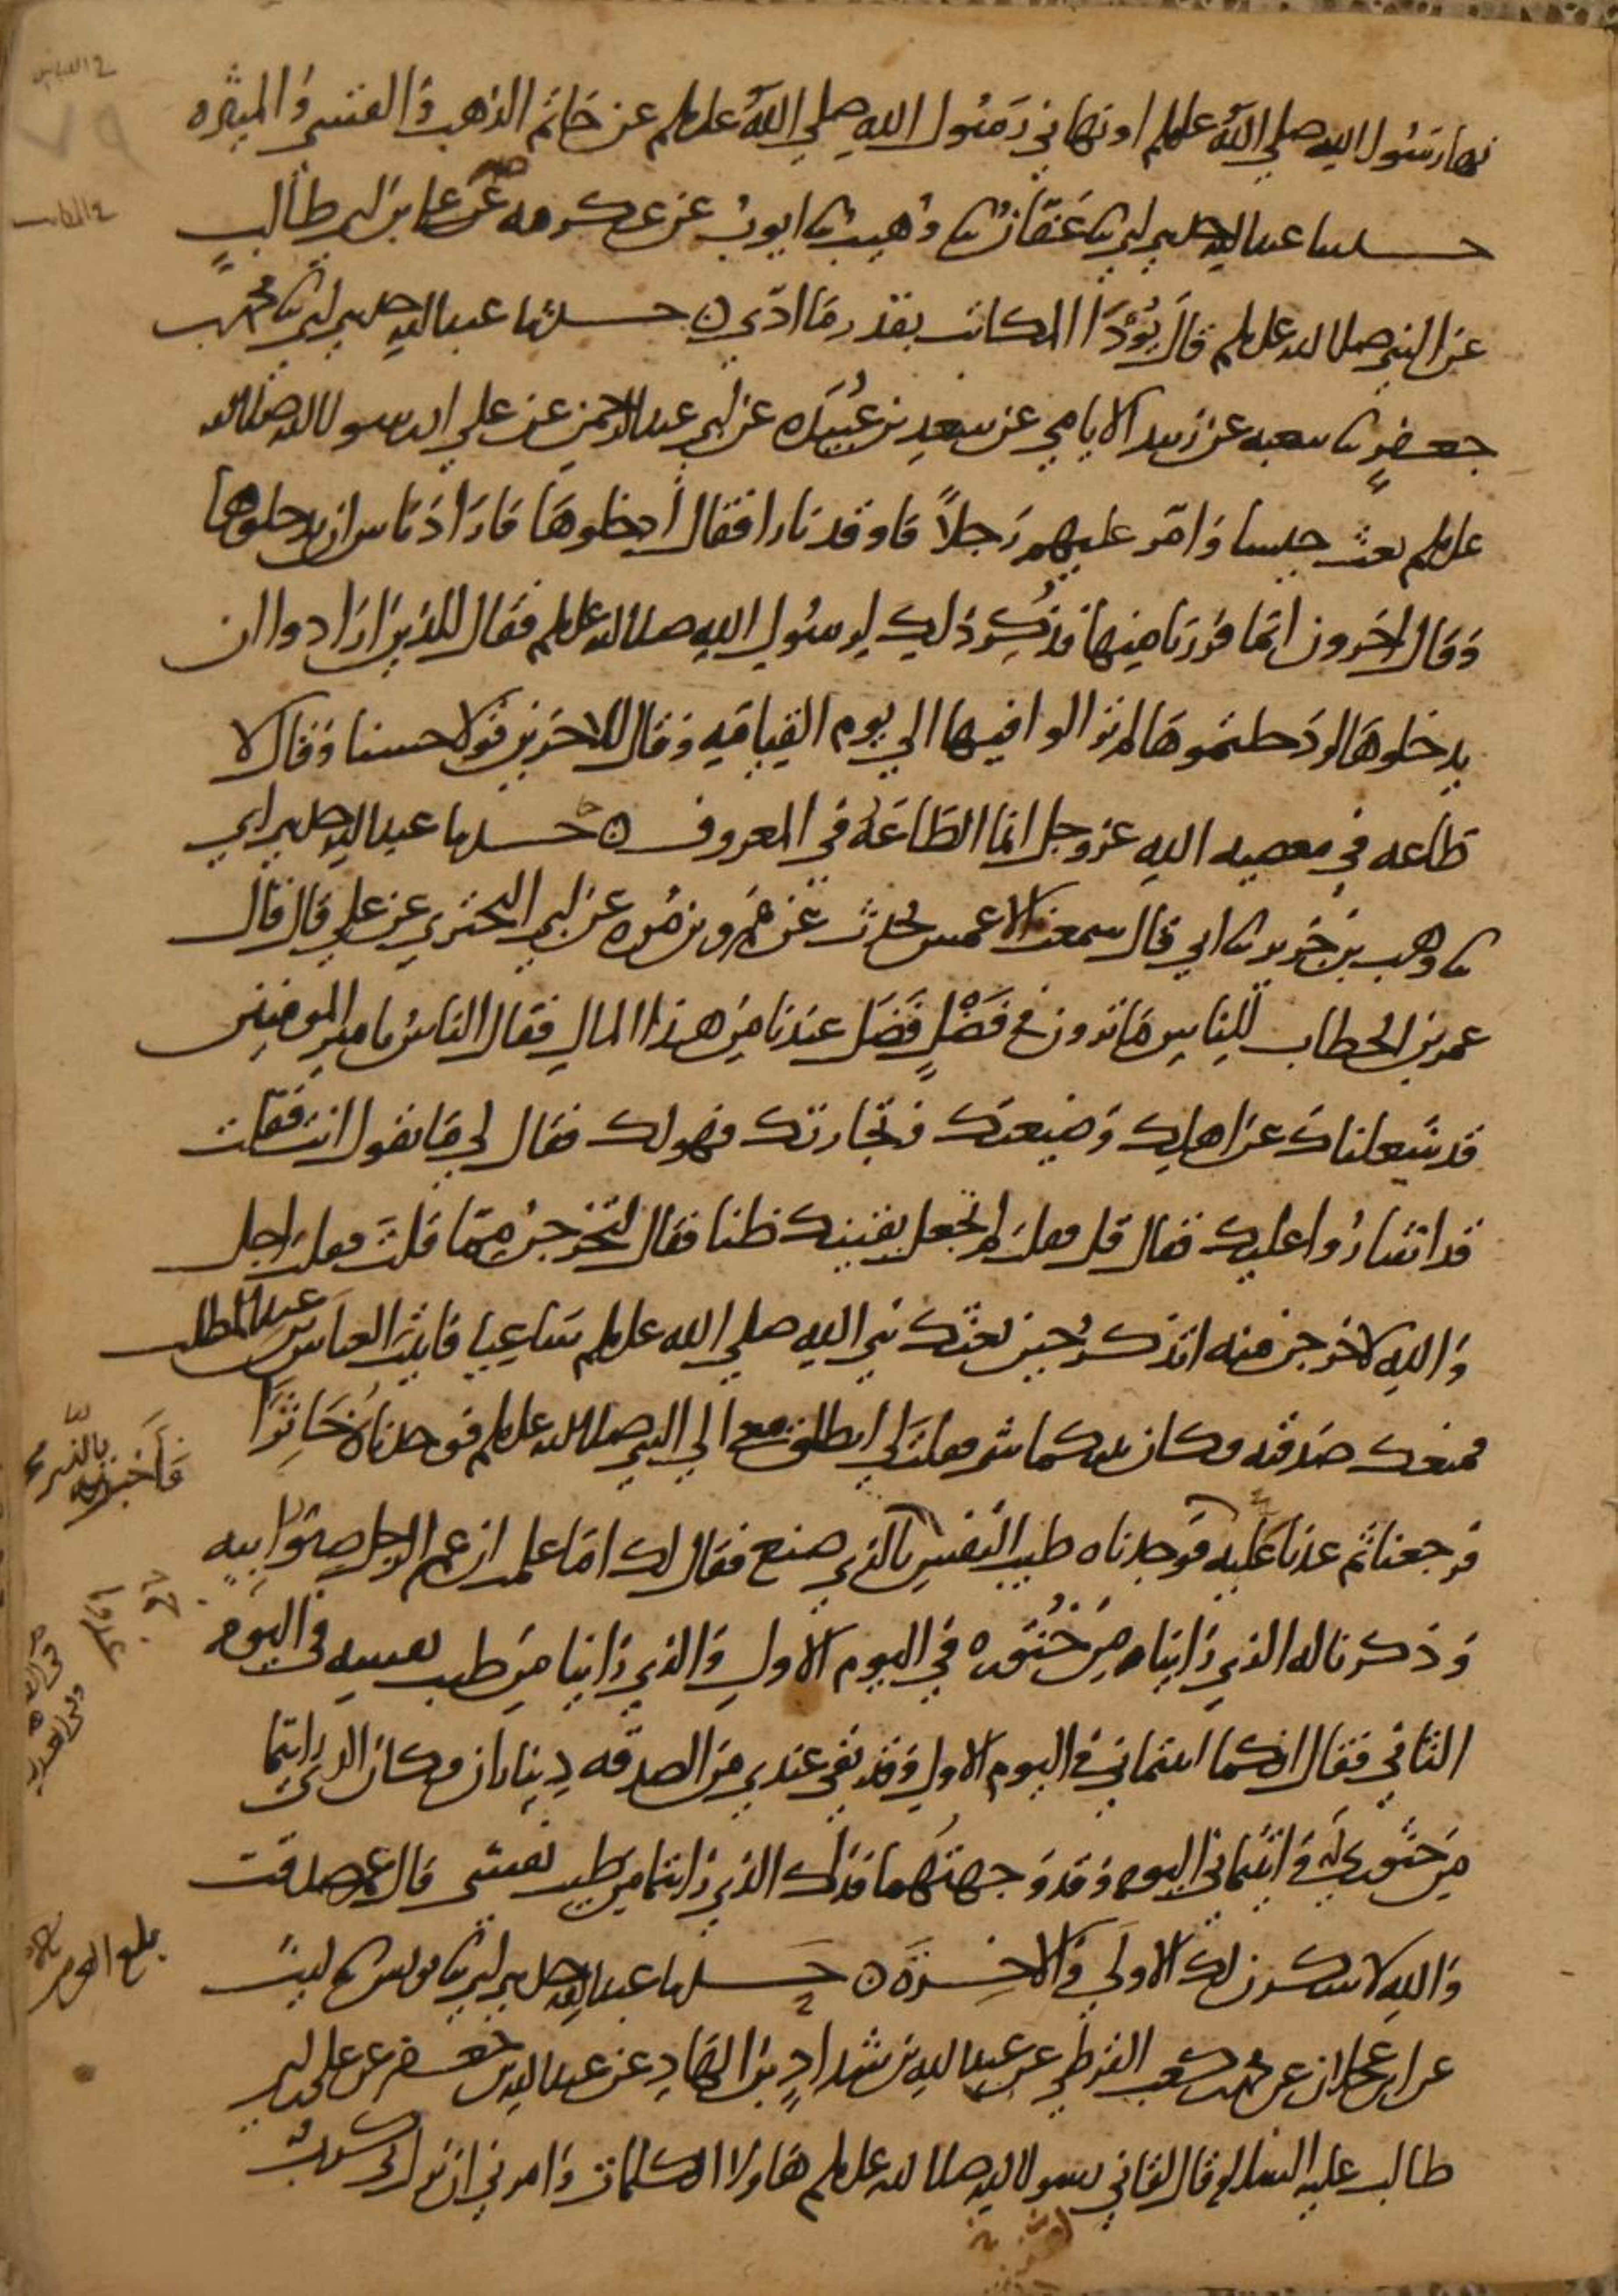 في اللباس
٧٩
نهانا رسول الله صلى الله عليه وسلم او نهاني رَسُول الله صلي الله عليه وسلم عن خاتم الذهب وَالقسي وَالميثره
في المكاتب
حدثنا عبد الله حدثني ابي ثنا عَفّانُ ثنا وُهيب ثنا ايوب عن عكرمه عن علي بن ابي طالبٍ
عن النبي صلى الله عليه وسلم قال يُؤدَا المكاتب بقدر مَا ادّى ن حدثنا عبد الله حدثني ابي ثنا محمد بن
جعفرٍ ثنا شعبه عن زبيد الايامي عن سعد بن عُبَيدَه عن ابي عبد الرحمن عن علي ان رسول الله صلى الله
عليه وسلم بعث جيشا وَامّر عليهم رَجلاً فاوقد نارا فقال ادخلوهَا فارَادَ ناس ان يدخلوها
وَقال اخرون انما فرَرنا منها فذُكِر ذلك لرسُول الله صلى الله عليه وسلم فقال للذين ارَادوا ان
يدخلوهَا لو دَخلتموهَا لم تزالوا فيها الي يوم القيامَه وَقال للاخرين قولا حسنا وَقال لا
طاعه في معصيه الله عز وجل انما الطَاعَةُ في المعروف ن حدثنا عبد الله حدثني ابي
ثنا وهب بن جَرير ثنا ابي قال سمعت الاعمش يحدث عن عَمرو بن مُره عن ابي البختري عن علي قال قال
عمر بن الخطاب للناس مَا ترون في فَضْلٍ فَضَل عندنا من هذا المال فقال الناسُ يا امير المومنين
قد شغلناكَ عن اهلِك وَضيعتك وَتجارتك فهو لك فقال لي مَا تقول انت فقلت
قد اشارُوا عليك فقال قل فقلت لم تجعل يقينك ظنا فقال لتخرجنّ ممّا قلتَ فقلت اجل
وَالله لاخرجن منه اتذكرُ حين بعثك نبي الله صلي الله عليه وسلم سَاعيا فاتيت العباس بن عبد المطلب
فمنعك صَدقته فكان بينكما شي فقلت لي انطلق معي الي النبي صلى الله عليه وسلم فوجدناهُ خَاثِرَا
فرجعنا ثم غدنا عَليه فوجدناه طيب النّفسِ فاَخبرته بالذي صنع فقال لك امَا علمت ان عم الرجل صِنوُ ابيهِ
وَذكرنا له الذي رَايناه مِن خُثوره في اليوم الاول وَالذي رَاينا مِن طيب نفسه في اليوم
الثاني فقال انكما اتيتماني في اليوم الاول وَقد بقي عندي من الصدقه دِيناران فكان الذي رَايتما
مِن خثوري له وَاتيتماني اليوم وَقد وَجهتهُما فذاك الذي رَايتما من طيب نفسي قال عمر صدقت
وَالله لاشكرن لك الاولَي وَالاخِرَة ن حَدثنا عبد الله حدثني ابي ثنا يونس ثنا ليث
عن ابن عجلان عن محمد بن كعب القرظي عن عبد الله بن شدادٍ بن الهَادِ عن عبد الله بن جعفر عن علي بن ابي
طالب عليه السلام قال لقاني رسول الله صلى الله عليه وسلم هَاولا الكلمات وَامرني ان نزل بي كربٌ